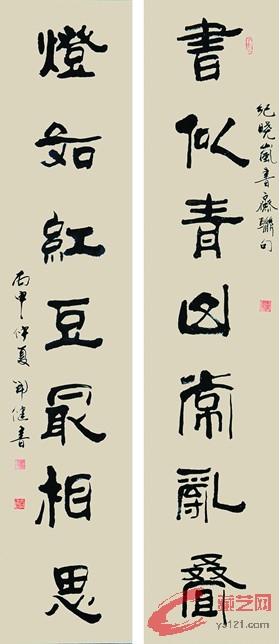 書似青山常亂疊
紀晓嵐書齋聯句
燈如紅豆最相思
丙申仲夏 健書
藏艺网
ys121.com